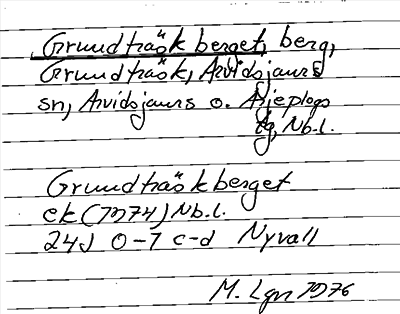 Grundträskberget, berg,
Grundträsk, Arvidsjaurs
sn, Arvidsjaurs o. Arjeplogs
tg, Nb.l.
Grundträskberget
ek (1974) Nb.l.
24J 0-1 c-d Nyvall
M. Lgn 1976